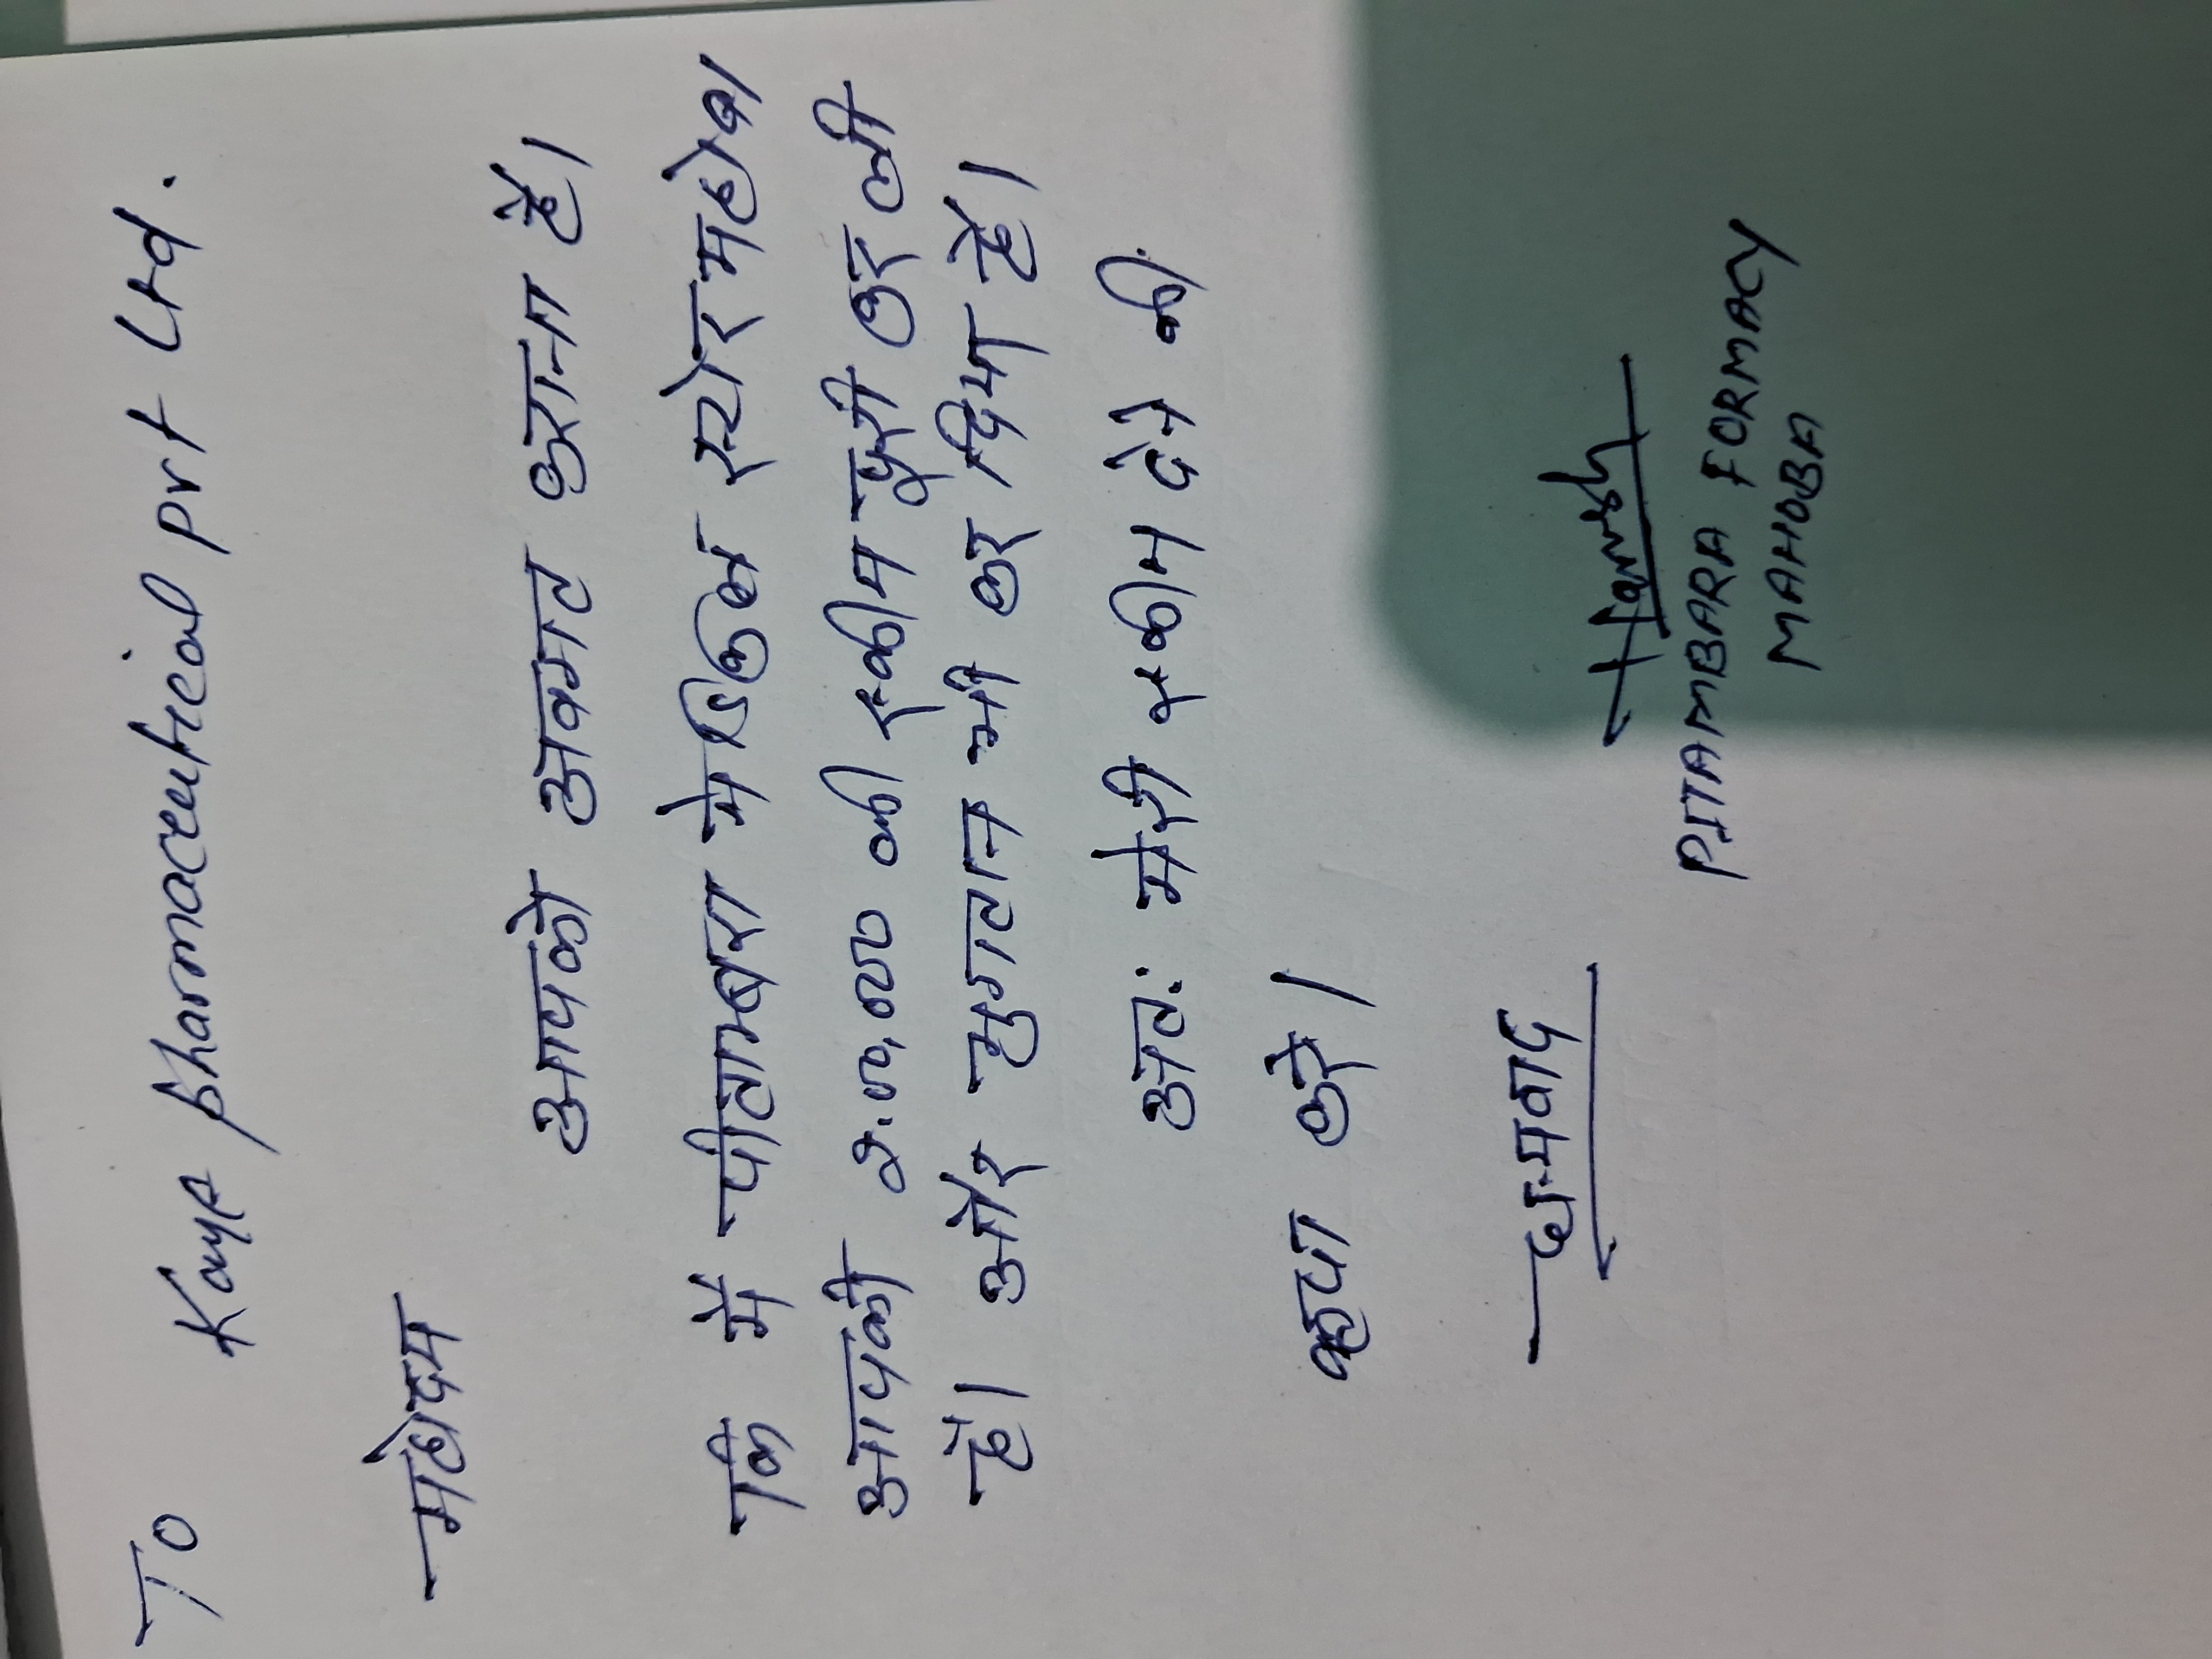 To
Kaya pharmaceutical pvt Ltd.
महोदय
आपको अवगत कराना है।
कि मै पीताम्बरा मेडिकल स्टोर महोबा
आपकी 2.50,000 की स्कीम पूरी कर ली
है। और भुगतान भी कर दिया है।
अतः मेरी स्कीम देने की
कृपा करे।
धन्यवाद
PITAMBARA FORMACY
MAHOBA